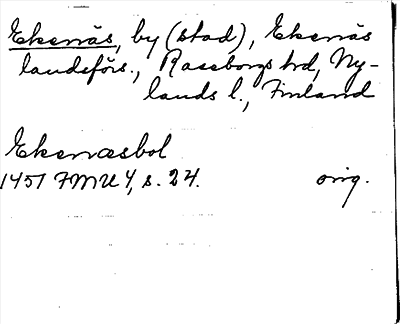 Ekenäs, by (stad), Ekenäs
landsförs., Raseborgs hd, Ny-
lands l., Finland
Ekenæsbol
1451 FMU 4, s. 24. orig.